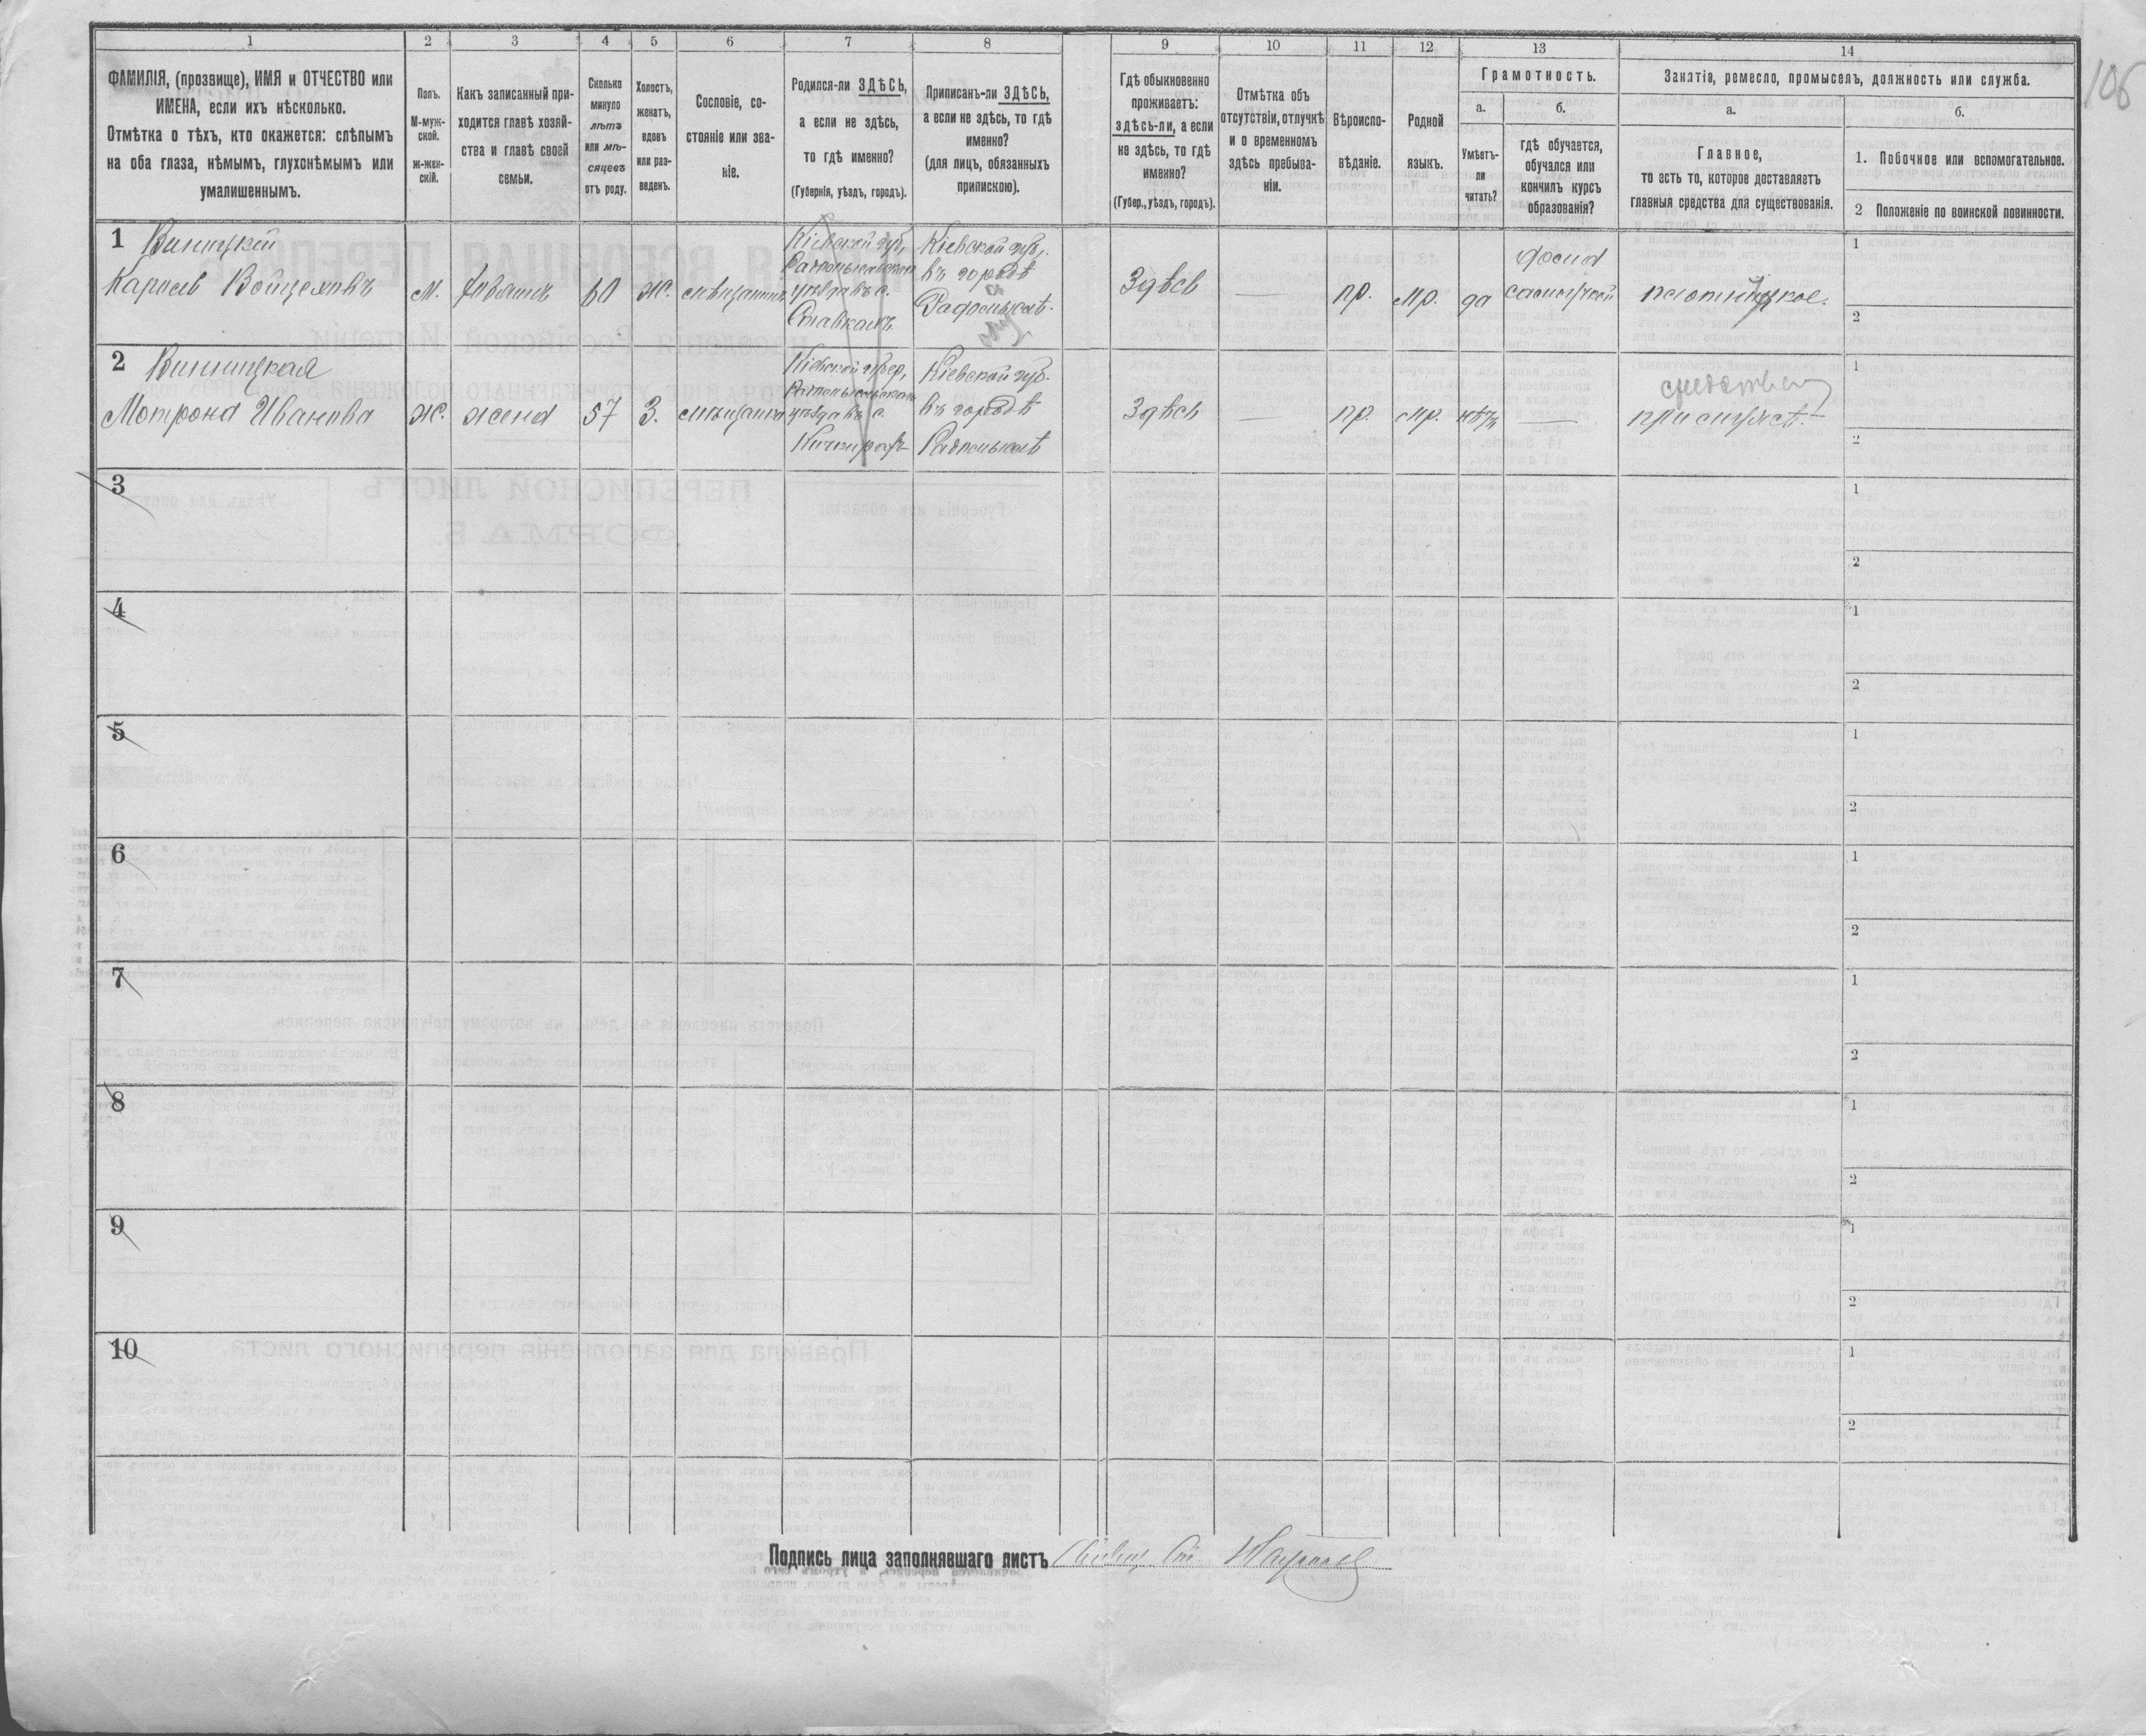 106
1
2
3
4
5
6
7
8
9
10
11
12
13
14
ФАМИЛІЯ, (прозвище), ИМЯ и ОТЧЕСТВО или
ИМЕНА, если ихъ нѣсколько.
Отмѣтка о тѣхъ, кто окажется: слѣпымъ
на оба глаза, нѣмымъ, глухонѣмымъ или
умалишеннымъ.
Полъ.
М-муж-
ской.
ж-жен-
скій.
Какъ записанный при-
ходится главѣ хозяй-
ства и главѣ своей
семьи.
Сколько
минуло
лѣтъ
или мѣ-
сяцевъ
отъ роду.
Холостъ,
женатъ,
вдовъ
или раз-
веденъ.
Сословіе, со-
стояніе или зва-
ніе.
Родился-ли ЗДѢСЬ,
а если не здѣсь,
то гдѣ именно?
(Губернія, уѣздъ, городъ).
Приписанъ-ли ЗДѢСЬ,
а если не здѣсь, то гдѣ
именно?
(для лицъ, обязанныхъ
припискою).
Гдѣ обыкновенно
проживаетъ:
здѣсь-ли, а если
не здѣсь, то гдѣ
именно?
(Губер., уѣздъ, городъ).
Отмѣтка объ
отсутствіи, отлучкѣ
и о временномъ
здѣсь пребыва-
ніи.
Вѣроиспо-
вѣданіе.
Родной
языкъ.
Грамотность.
а.
б.
Умѣетъ-
ли
читать?
гдѣ обучается,
обучался или
кончилъ курсъ
образованія?
Занятіе, ремесло, промыселъ, должность или служба.
а.
б.
Главное,
то есть то, которое доставляетъ
главныя средства для существованія.
1. Побочное или вспомогательное.
2 Положеніе по воинской повинности.
1
Винницкій
Карпъ Войцеховъ
М.
хозяинъ
60
ж.
мѣщанинъ
Кіевской губ,
Радомысльскаго
уѣзда въ с.
Ставкахъ
Кіевской губ.
въ городѣ
Радомыслѣ.
Здѣсь
—
пр.
мр.
да
плотницкое.
1
2
2
Винницкая
Мотрона Иванова
ж.
жена
57
З.
мѣщанка
Кіевской губер,
Радомысльскаго
уѣзда въ с.
Кіевской губ.
въ городѣ
Радомыслѣ
Здѣсь
—
пр.
мр.
нѣтъ
—
при мужѣ.
1
2
3
1
2
4
1
2
5
1
2
6
1
2
7
1
2
8
1
2
9
1
2
10
1
2
Подпись лица заполнявшаго листъ